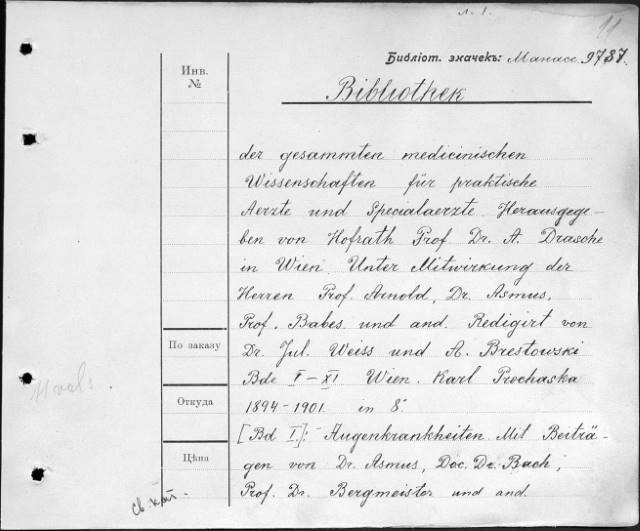 л. I.
11
Библіот. значекъ: Манасс. 9787.
Инв.
№
Bibliothek
der gesammten medicinischen
Wissenschaften für praktische
Aerzte und Specialaerzte. Herausgege-
ben von Hofrath Prof. Dr. A. Drasche
in Wien. Unter Mitwirkung der
Herren Prof. Arnold, Dr. Asmus,
Prof. Babes und and. Redigirt von
По заказу
Dr. Jul. Weiss und A. Brestowski
Bde I–XI Wien. Karl Prochaska
11 vols.
Откуда
1894–1901. in 8°.
[Bd I]: Augenkrankheiten. Mit Beiträ-
Цѣна
gen von Dr. Asmus, Doc. Dr. Bach,
Prof. Dr. Bergmeister und and.